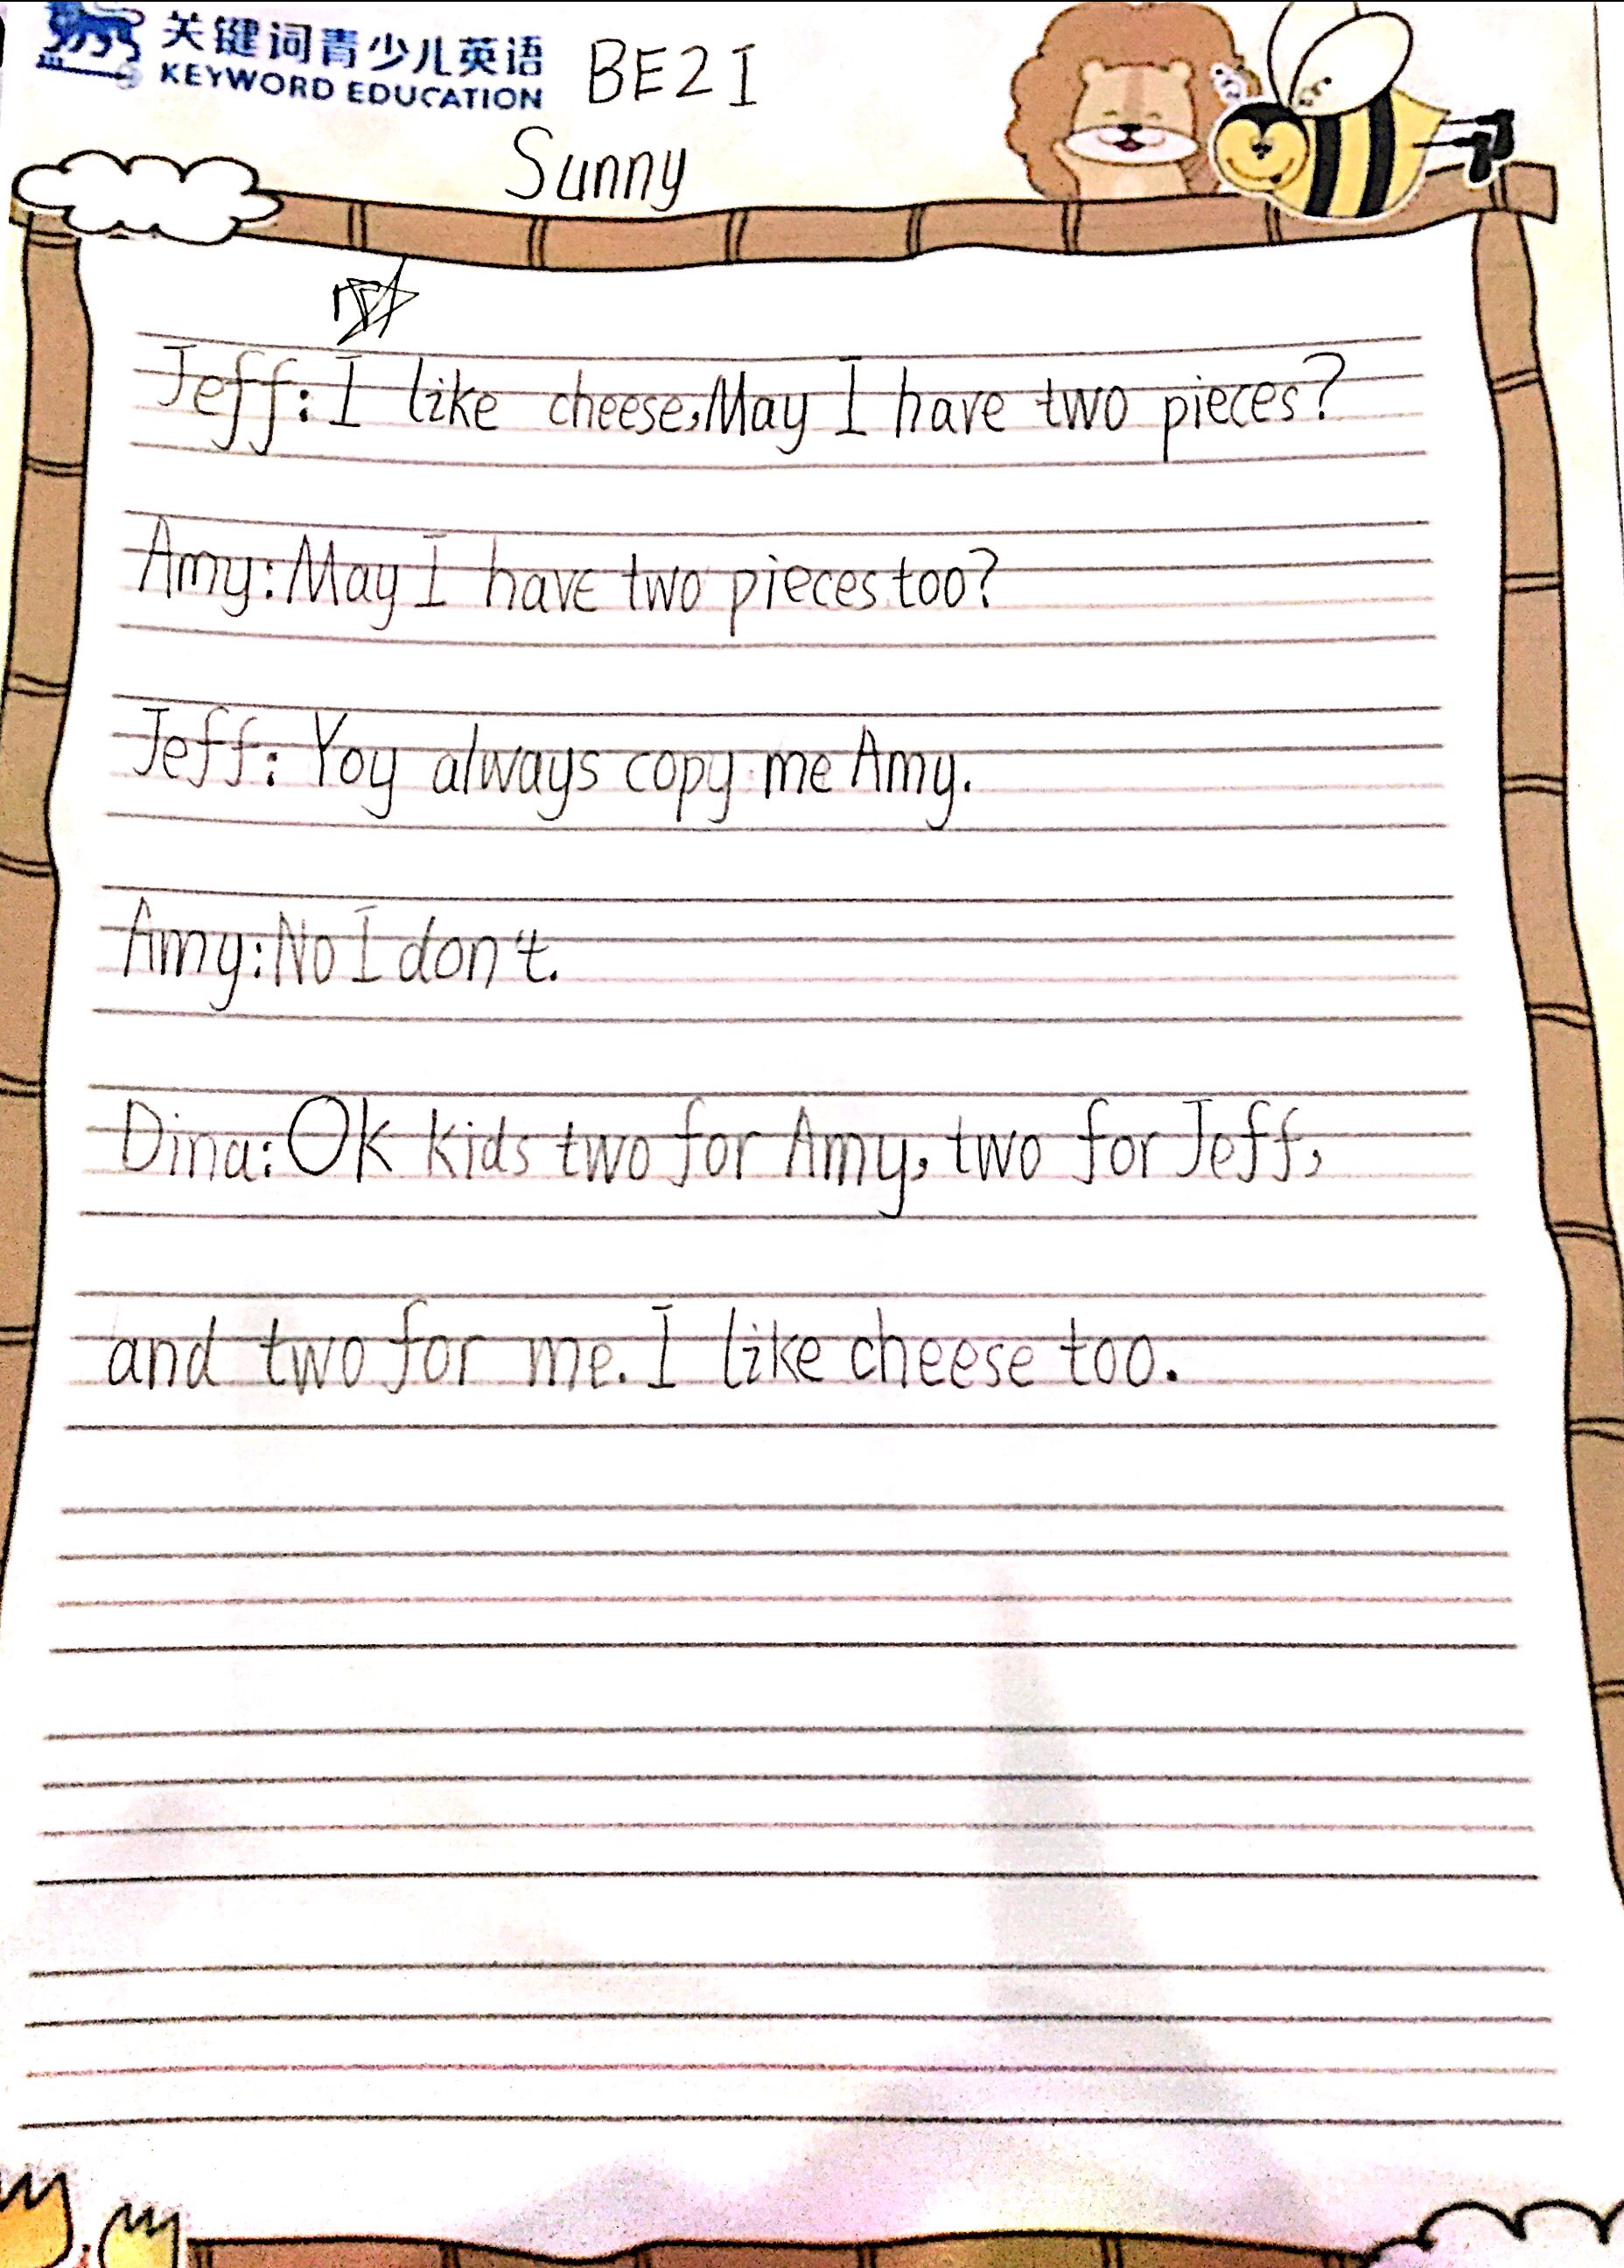 关键词青少儿英语
KEYWORD EDUCATION
BE2I
Sunny
Jeff: I like cheese,May I have two pieces?
Amy: May I have two pieces too?
Jeff: Yoy always copy me Amy.
Amy: No I don't.
Dina: OK kids two for Amy, two for Jeff,
and two for me. I like cheese too.